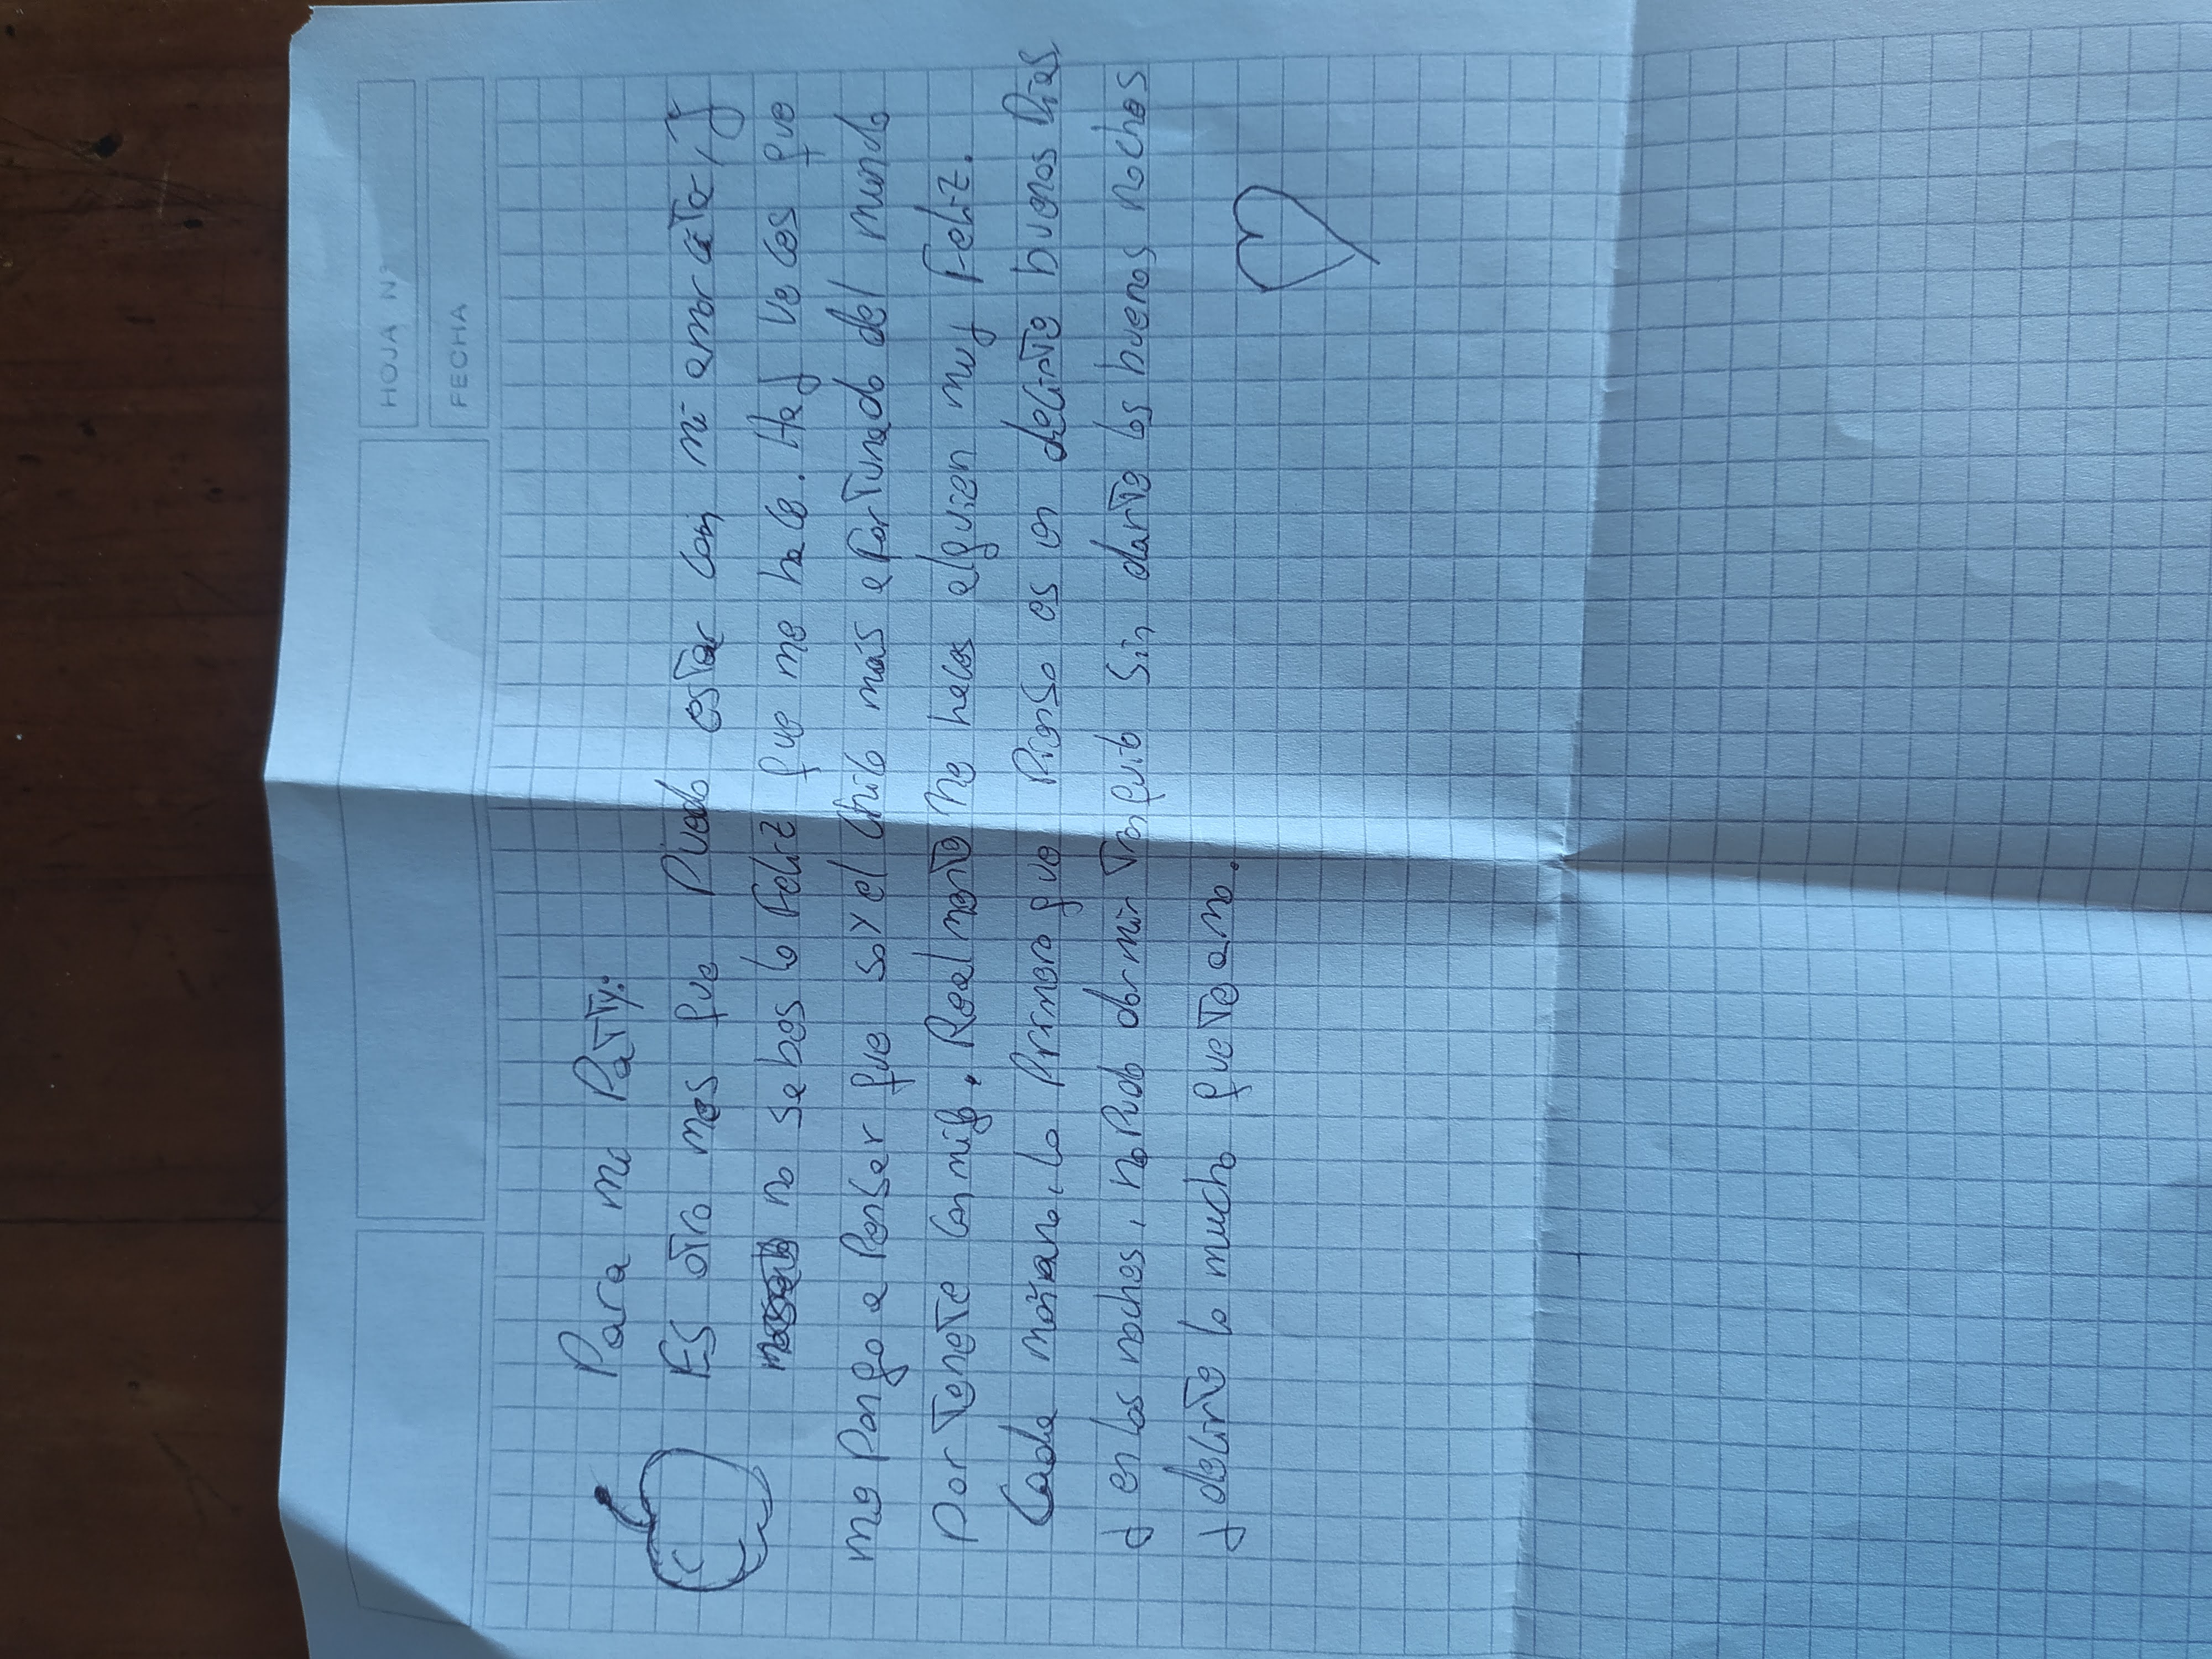 HOJA N°
FECHA
Para mi Patty:
Es otro mes que Puedo estar con mi amorcita, y
no sabes lo Feliz que me hace. Hay veces que
me Pongo a Pensar que soy el chico más afortunado del mundo
Por tenete conmigo. Realmente me haces alguien muy Feliz.
Cada mañana, lo Primero que Pienso es en decirte buenos Días
y en las noches, no Pudo dormir tranquilo sin darte las buenas noches
y decirte lo mucho que te amo.